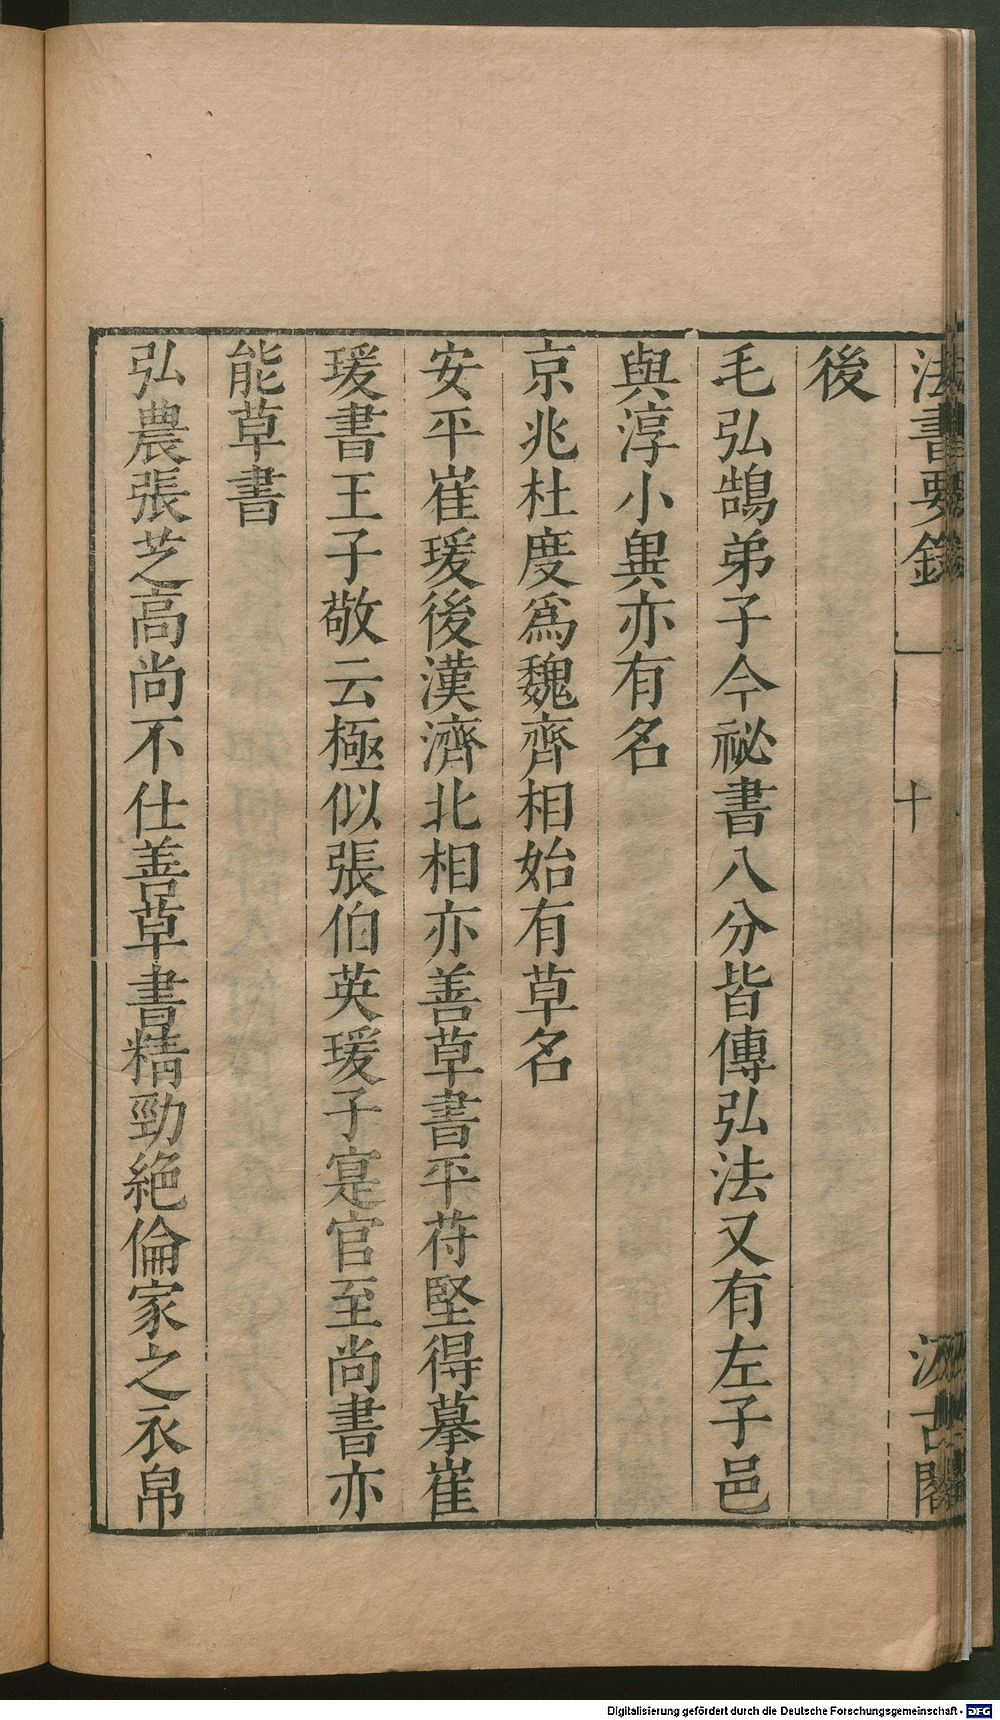 法書要錄 十 汲古閣
後
毛弘鵠弟子今祕書八分皆傳弘法又有左子邑
與淳小異亦有名
京兆杜度爲魏齊相始有草名
安平崔瑗後漢濟北相亦善草書平苻堅得摹崔
瑗書王子敬云極似張伯英瑗子寔官至尚書亦
能草書
弘農張芝高尚不仕善草書精勁絕倫家之衣帛
Digitalisierung gefördert durch die Deutsche Forschungsgemeinschaft - DFG